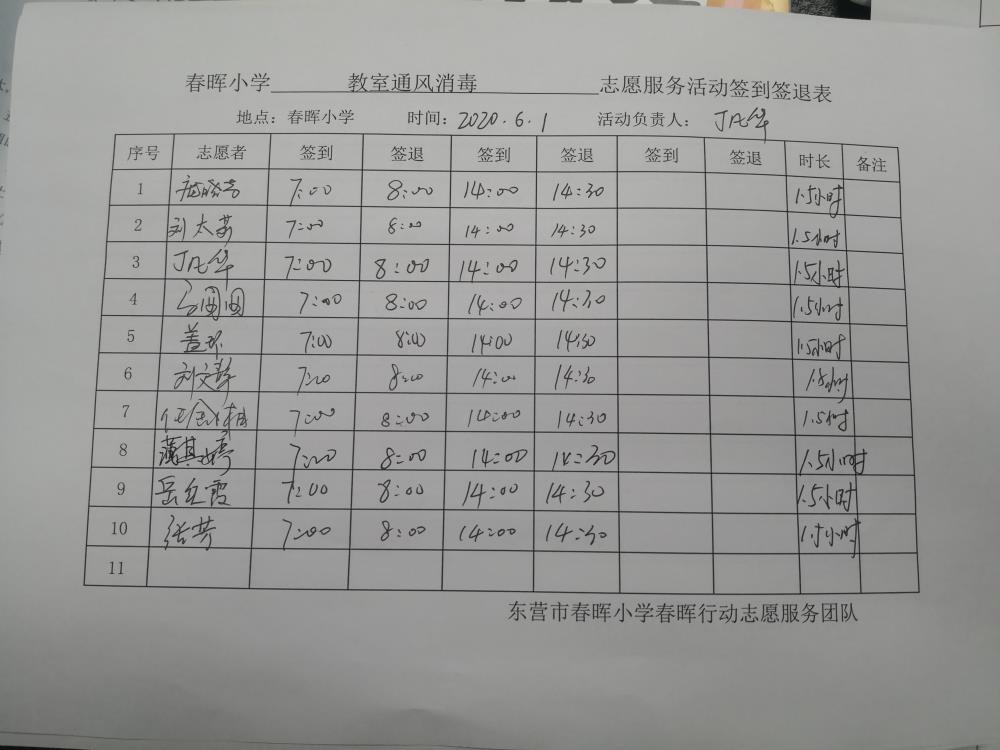 春晖小学 教室通风消毒 志愿服务活动签到签退表
地点：春晖小学 时间：2020.6.1 活动负责人：丁凡华
序号 志愿者 签到 签退 签到 签退 签到 签退 时长 备注
1 7:00 8:00 14:00 14:30 1.5小时
2 刘太芬 7:00 8:00 14:00 14:30 1.5小时
3 丁凡华 7:00 8:00 14:00 14:30 1.5小时
4 7:00 8:00 14:00 14:30 1.5小时
5 盖环 7:00 8:00 14:00 14:30 1.5小时
6 刘文静 7:00 8:00 14:00 14:30 1.5小时
7 7:00 8:00 14:00 14:30 1.5时
8 7:00 8:00 14:00 14:30 1.5小时
9 岳红霞 7:00 8:00 14:00 14:30 1.5小时
10 张芳 7:00 8:00 14:00 14:30 1.5小时
11
东营市春晖小学春晖行动志愿服务团队